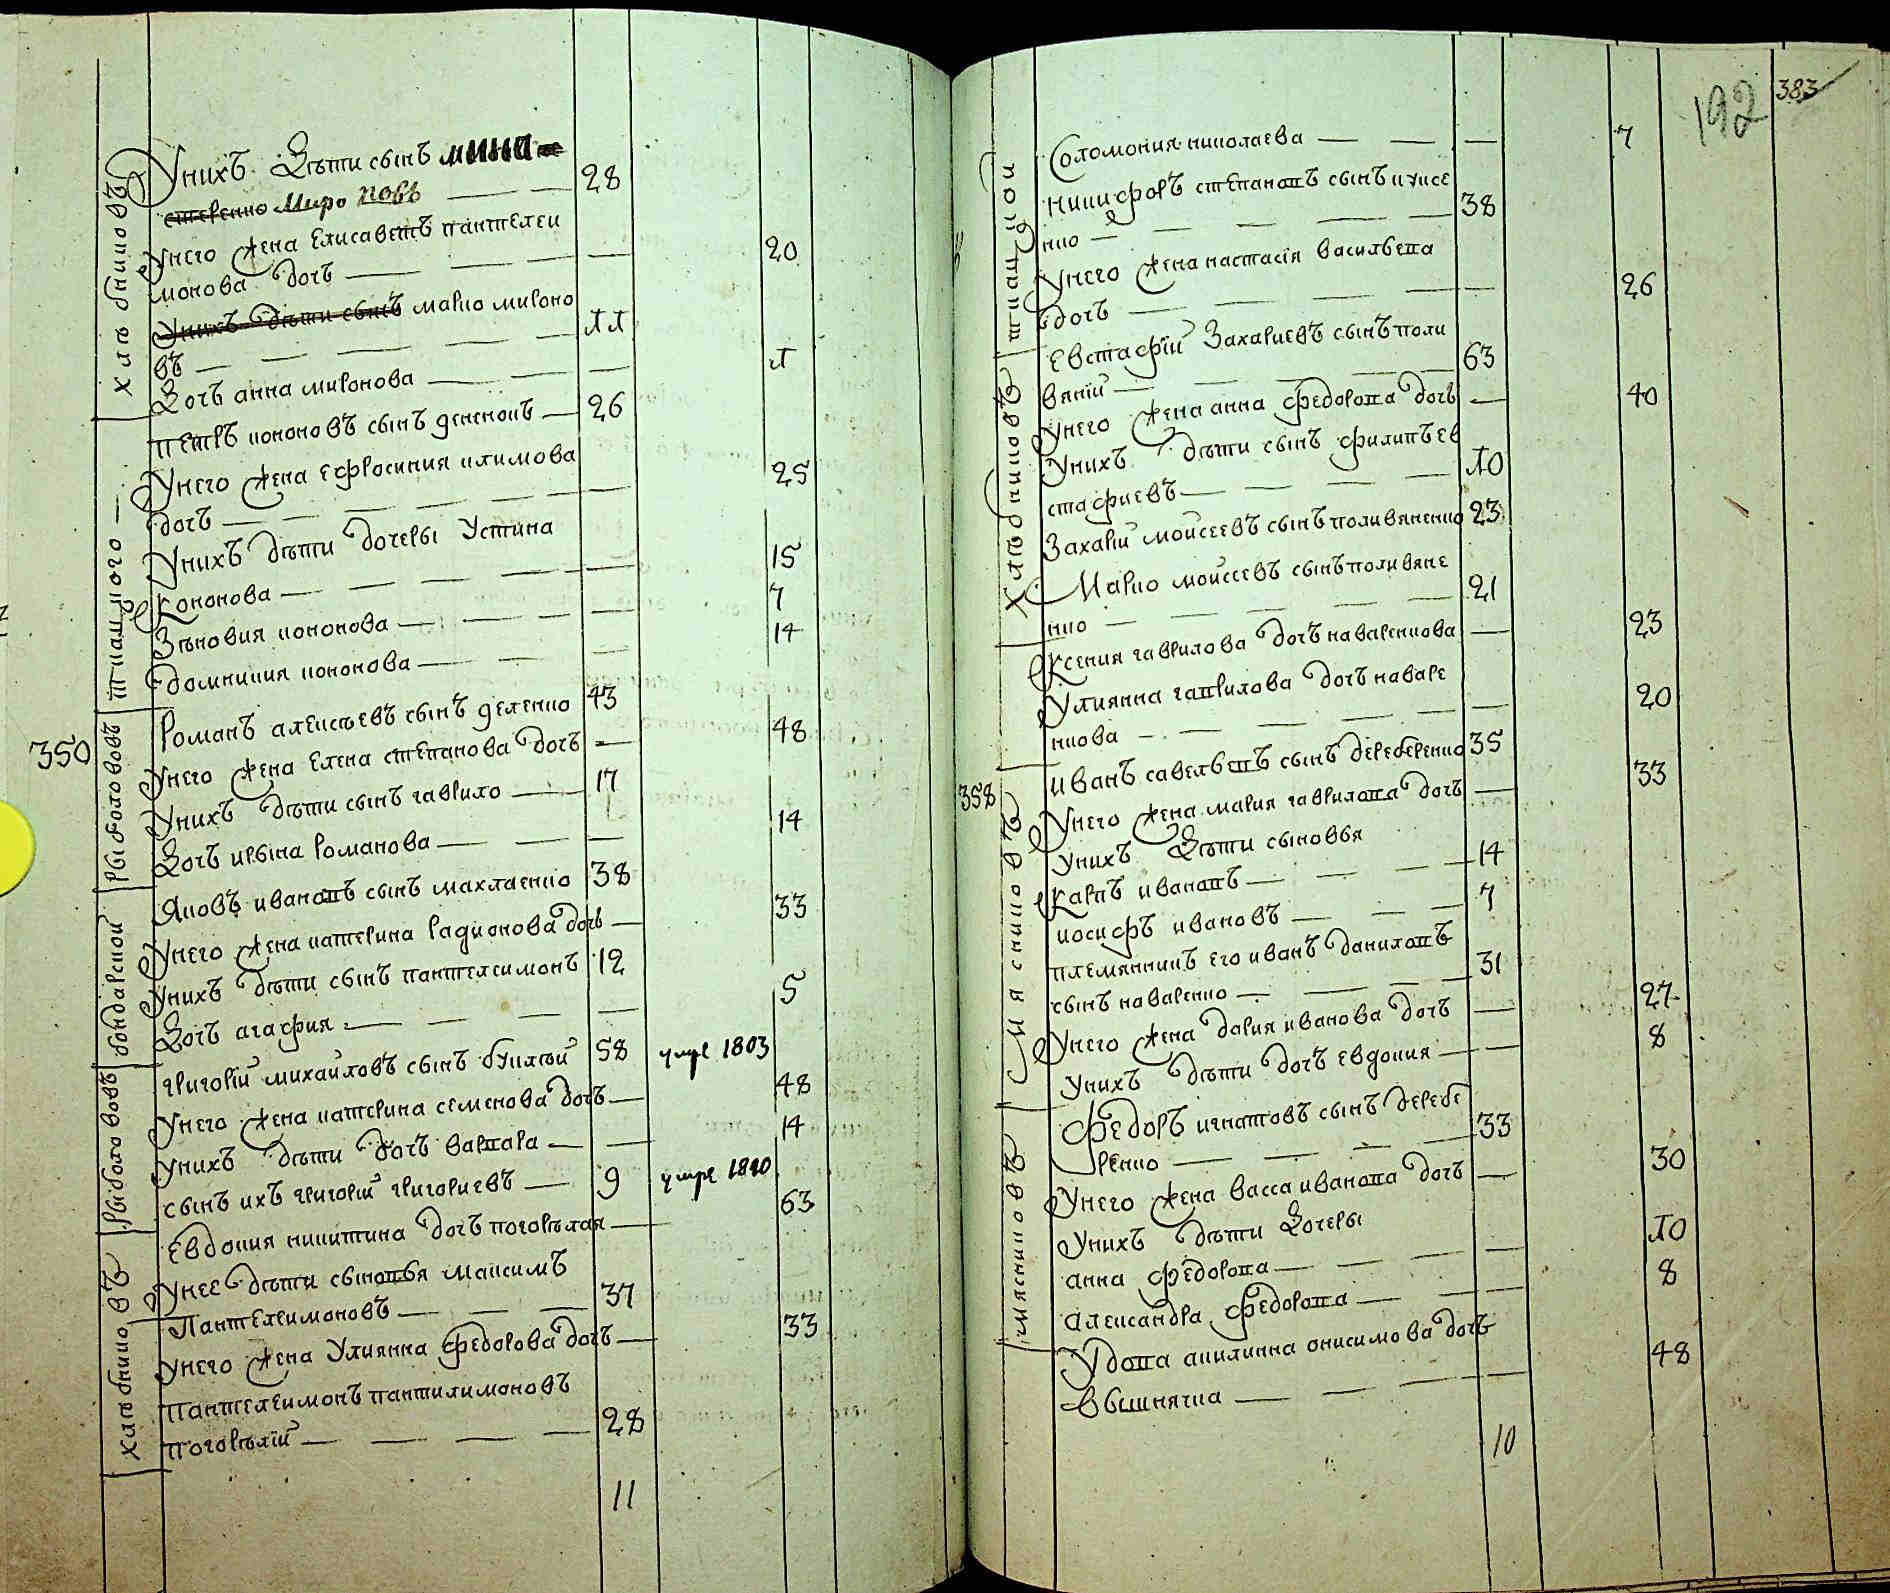 Унихъ Дѣти сынъ мина
Миро новъ 28
Унего жена Елисаветъ пантелеи
монова дочь 20
Унихъ дѣти сынъ марко мироно
въ
Дочь анна миронова
Петръ кононовъ сынъ 26
Унего жена ефросиния климова
дочь 25
Унихъ дѣти дочеры Устина
Кононова 15
Зѣновия кононова 7
домникия кононова 14
350
Романъ алексѣевъ сынъ деленко 43
Унего жена Елена степанова дочь 48
Унихъ дѣти сынъ гаврило 17
Дочь ирына романова 14
Яковъ ивановъ сынъ махлаенко 38
Унего жена катерина радионова дочь 33
Унихъ дѣти сынъ пантелеимонъ 12
Дочь агафия 5
григорій михайловъ сынъ 58 умре 1803
Унего жена катерина семенова дочь 48
Унихъ дѣти дочь варвара 14
сынъ ихъ григорій григориевъ 9 умре 1810
Евдокия никитина дочь погорѣлая 63
Унее дѣти сыновья максимъ
Пантелеимоновъ 37
Унего жена Улиянна федорова дочь 33
Пантелеимонъ пантилимоновъ
погорѣлій 28
11
хлѣбниковъ
ткацкого
рыболововъ
бондарской
рыболововъ
хлѣбниковъ
192
383
Соломония николаева 7
никифоръ степановъ сынъ
нко 38
Унего жена настасія васильева
дочь 26
Евстафій Захариевъ сынъ поли
вяній 63
Унего жена анна федорова дочь 40
Унихъ дѣти сынъ филипъ ев
стафиевъ 10
Захарій моисеевъ сынъ поливяненко 23
Марко моисеевъ сынъ поливяне
нко 21
Ксения гаврилова дочь наваренкова 23
Улиянна гаврилова дочь наваре
нкова 20
358
иванъ савельевъ сынъ деребренко 35
Унего жена мария гаврилова дочь 33
Унихъ Дѣти сыновья
Карпъ ивановъ 14
иосифъ ивановъ 7
племянникъ его иванъ даниловъ
сынъ наваренко 31
Унего жена дария иванова дочь 27
Унихъ дѣти дочь евдокия 8
Федоръ игнатовъ сынъ деребе
ренко 33
Унего жена васса иванова дочь 30
Унихъ дѣти Дочеры
анна федорова 10
александра федорова 8
Удова акилинна онисимова дочь
вышнячка 48
10
ткацкой
Хлѣбниковъ
Мяснико въ
мясниковъ